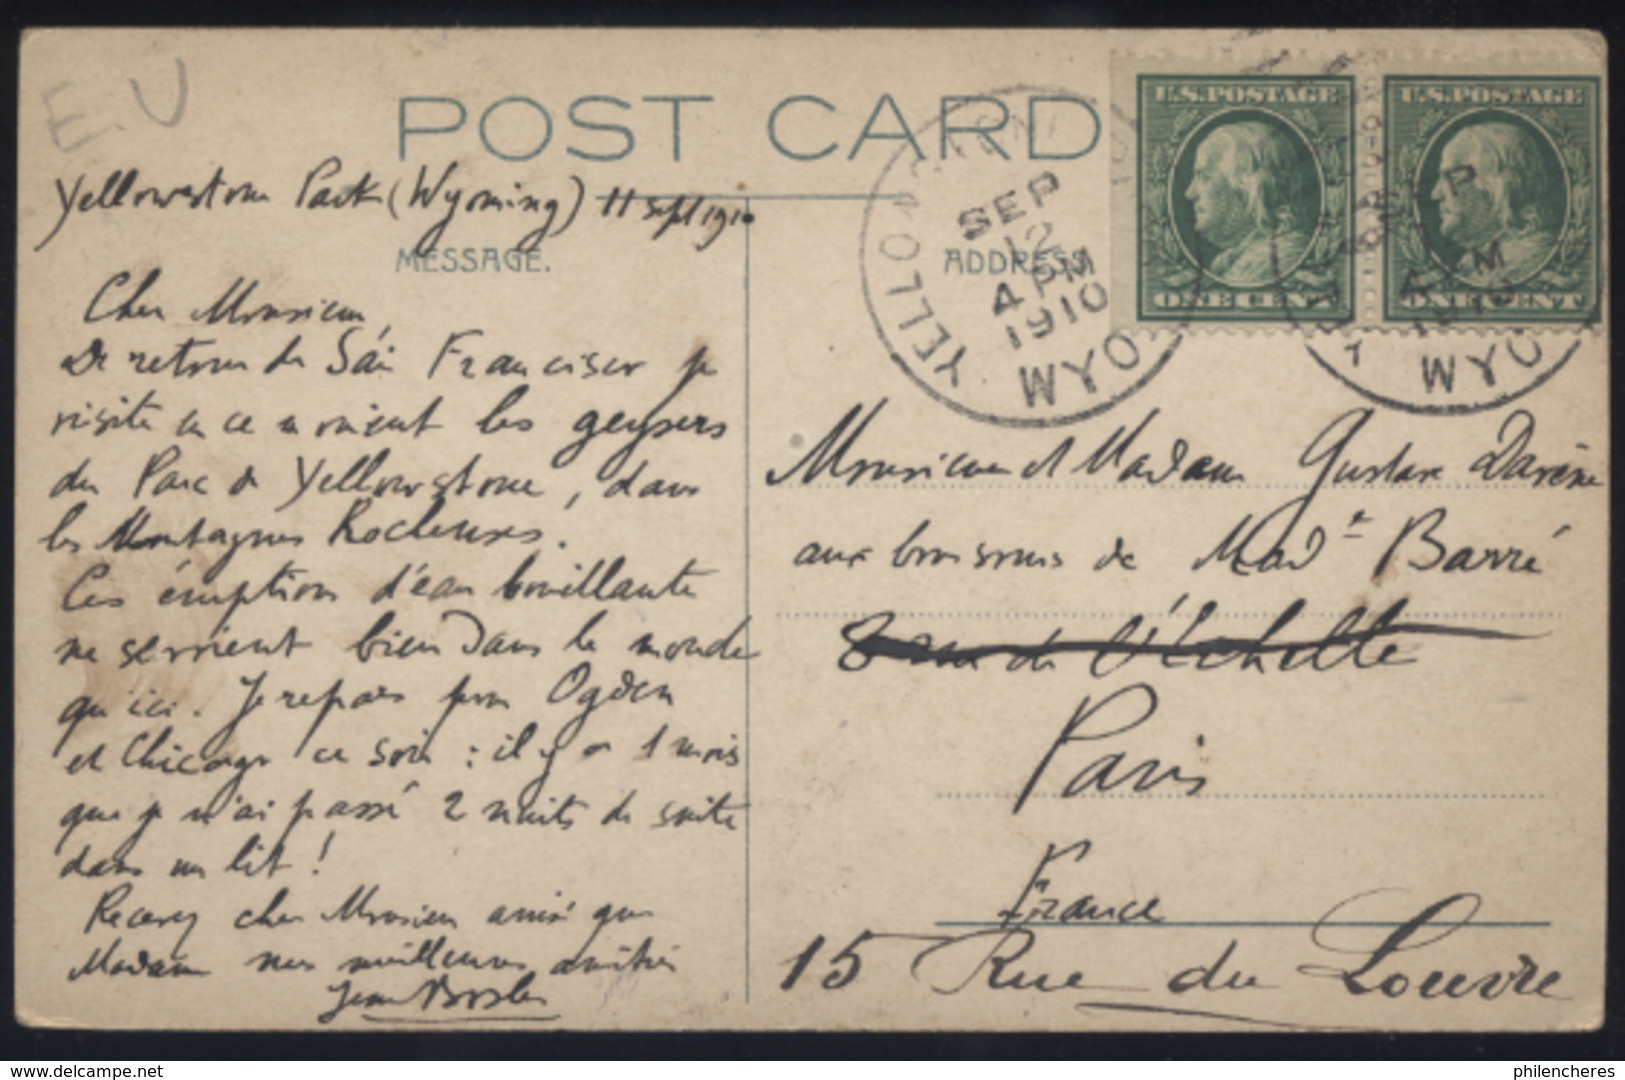 E.U
POST CARD
Yellowstone Park (Wyoming) 11 Sept 1910
MESSAGE.
Cher Monsieur,
De retour de San Francisco je
visite en ce moment les geysers
du Parc de Yellowstone, dans
les Montagnes Rocheuses.
Ces éruptions d'eau bouillante
ne se voient bien dans le monde
qu'ici. Je repars pour Ogden
et Chicago ce soir : il y a 1 mois
que je n'ai passé 2 nuits de suite
dans un lit !
Recevez cher Monsieur ainsi que
Madame mes meilleures amitiés
Jean
ADDRESS
YELLOW
SEP
12
4 PM
1910
WYO.
U.S.POSTAGE
ONE CENT
U.S.POSTAGE
ONE CENT
SEP
4 PM
1910
WYO.
Monsieur et Madame Gustave
aux bons soins de Mad.e Barré
8 rue de l'Échelle
Paris
France
15 Rue du Louvre
www.delcampe.net
philencheres